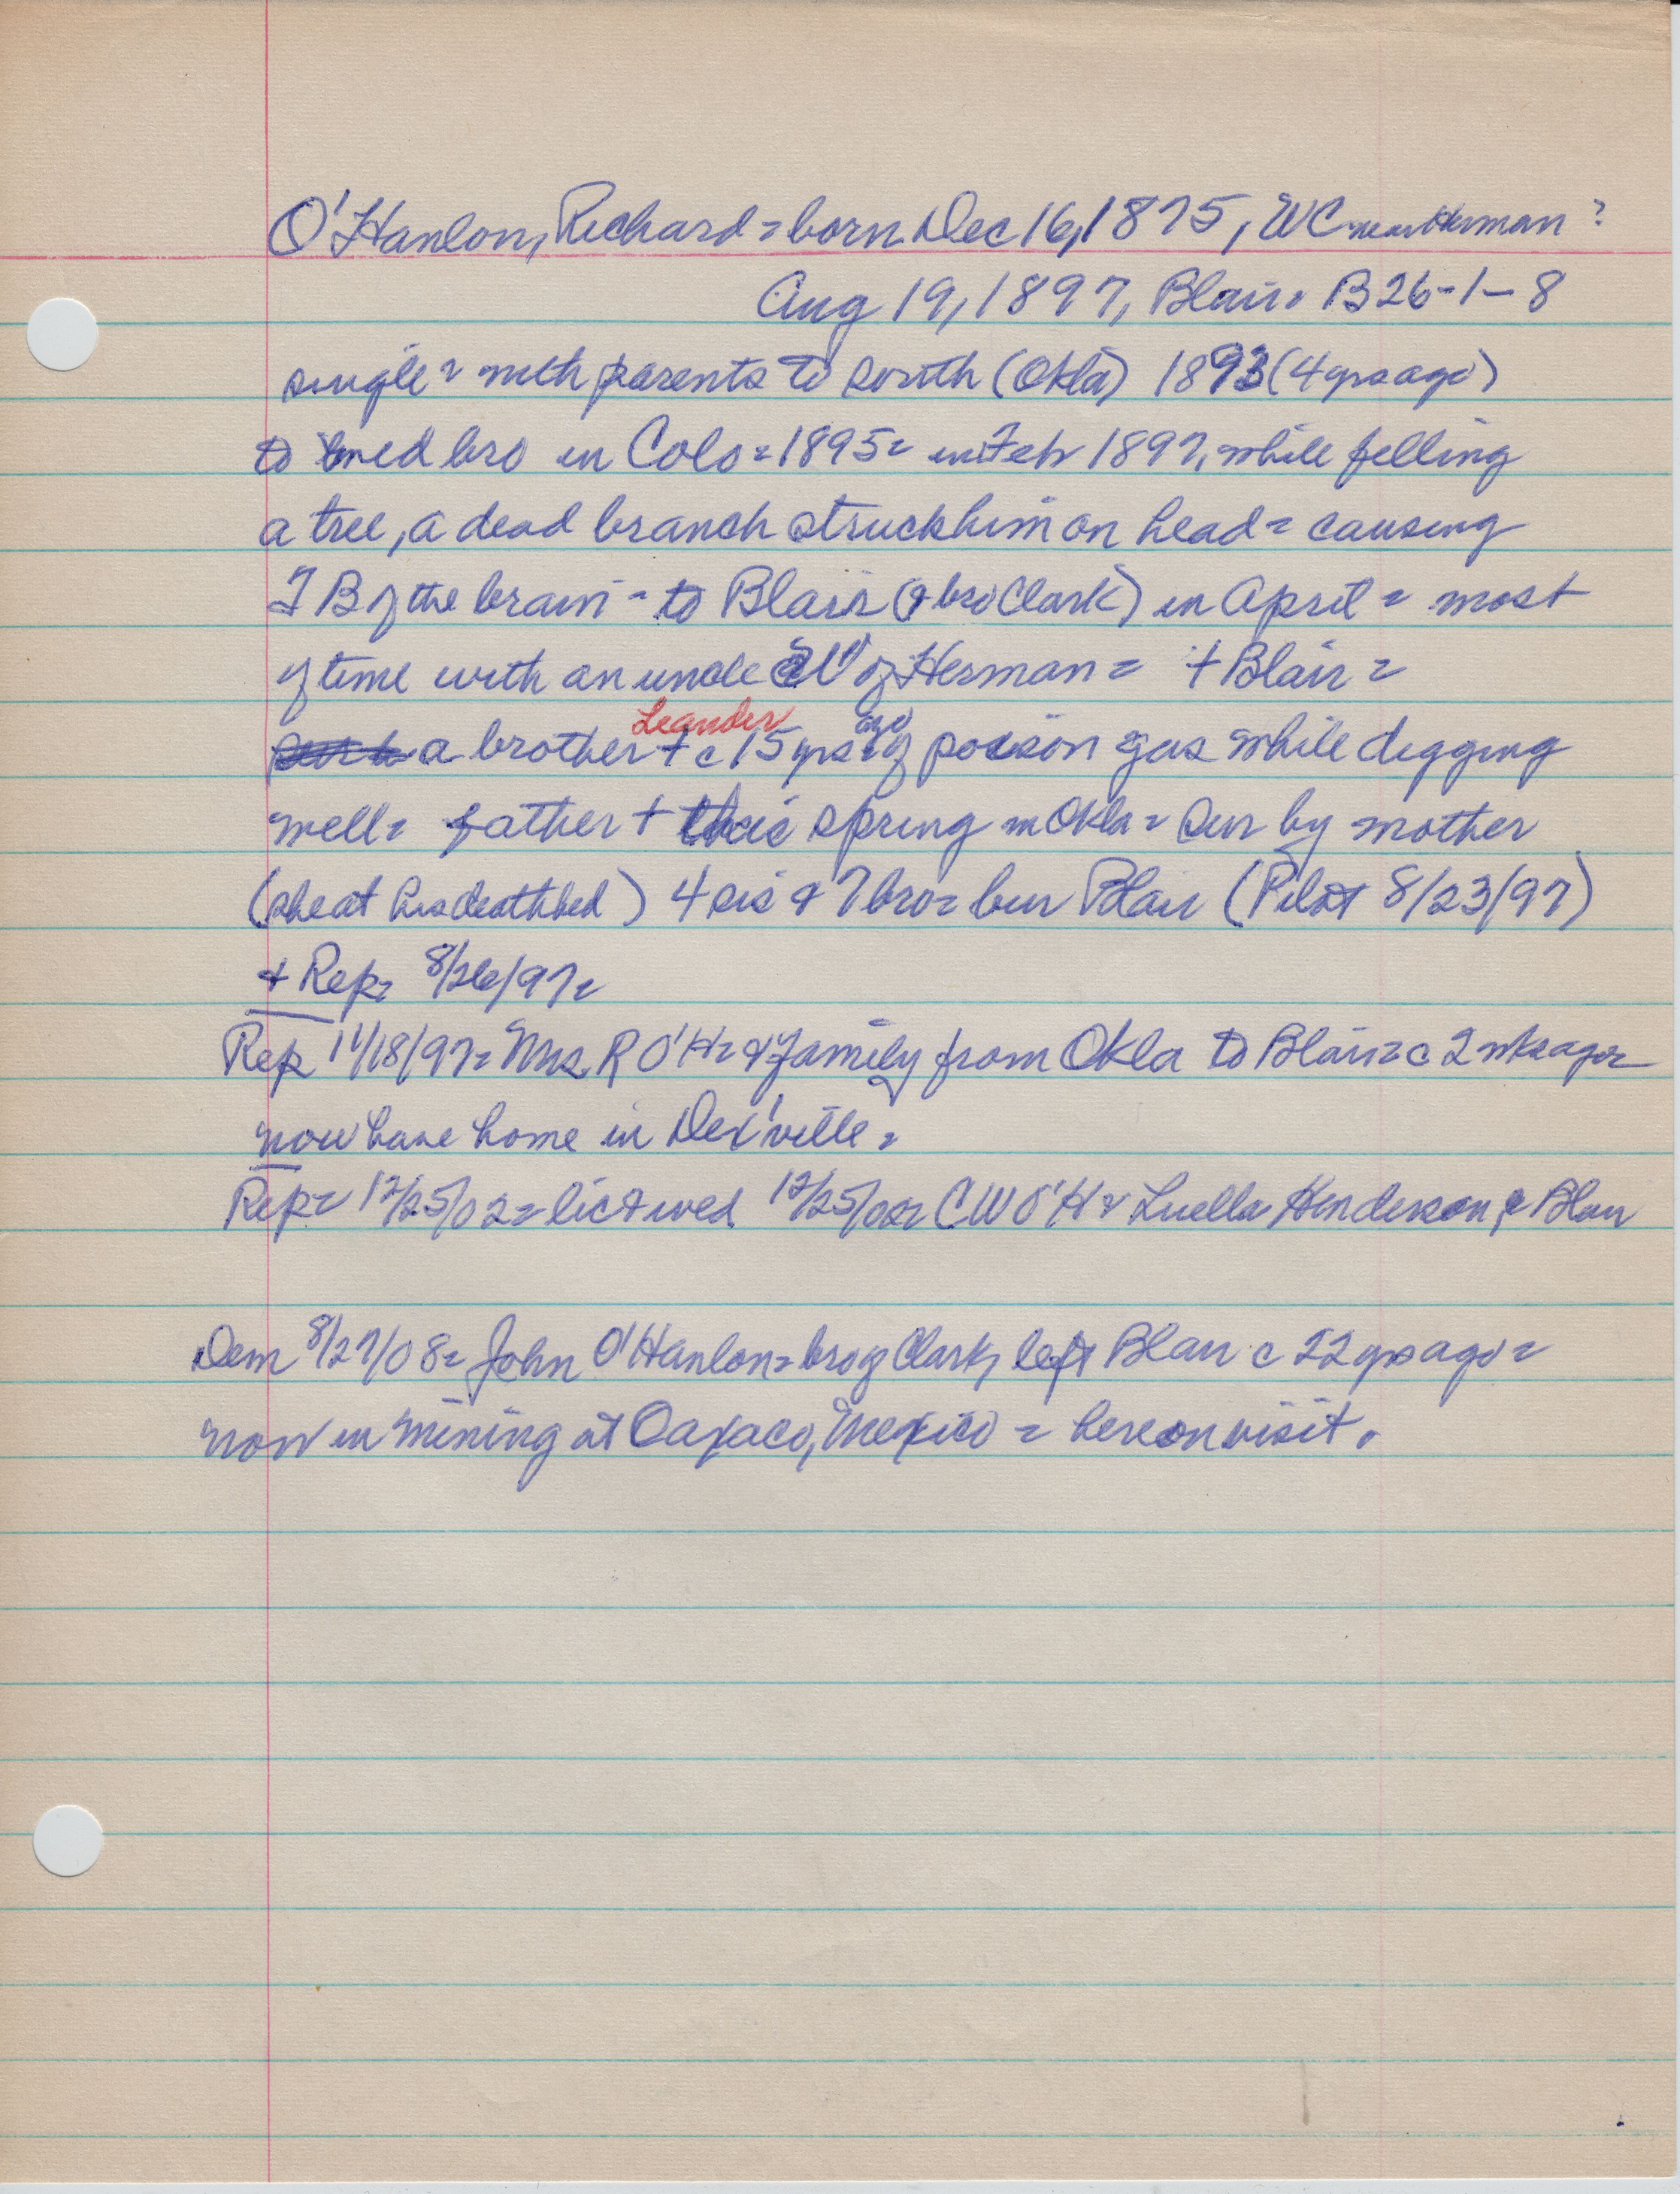 O'Hanlon, Richard = born Dec 16, 1875, WC near Herman ?
Aug 19, 1897, Blair = B26-1-8
single = with parents to south (Okla) 1893 (4 yrs ago)
to med bro in Colo = 1895 = in Feb 1897, while felling
a tree, a dead branch struck him on head = causing
TB of the brain - to Blair (& bro Clark) in April = most
of time with an uncle W of Herman = + Blair =
a brother Leander + c 15 yrs ago of poison gas while digging
well = father + this spring in Okla = sur by mother
(she at his deathbed) 4 sis & 7 bro = bur Blair (Pilot 8/23/97)
+ Rep = 8/26/97 =
Rep 11/18/97 = Mrs R O'H = & family from Okla to Blair = c 2 wks ago =
now have home in Dex'ville =
Rep = 12/25/02 = lic & wed 12/25/02 = C W O'H & Luella Henderson, Blair
Dem 8/27/08 = John O'Hanlon = bro of Clark, left Blair c 22 yrs ago =
now in mining at Oaxaco, Mexico = here on visit.